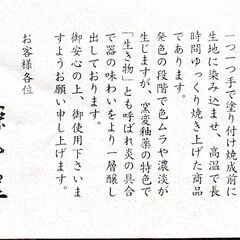 一つ一つ手で塗り付け焼成前に
生地に染み込ませ、高温で長
時間ゆっくり焼き上げた商品
であります。
発色の段階で色ムラや濃淡が
生じますが、窯変釉薬の特色で
「生き物」とも呼ばれ炎の具合
で器の味わいをより一層醸し
出しております。
御安心の上、御使用下さいま
すようお願い申し上げます。
お客様各位